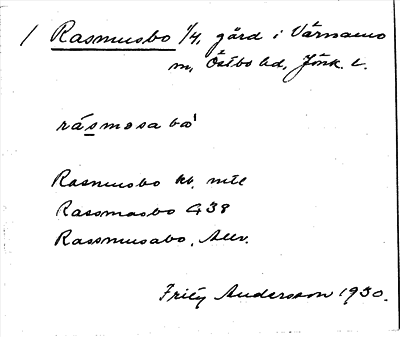 / Rasmusbo 1/4, gård i Värnamo
m, Östbo hd, Jönk. l.
råsmosabo
Rasmusbo kb. mtl
Rassmasbo G38
Rassmusabo,
Fritz Andersson 1930.